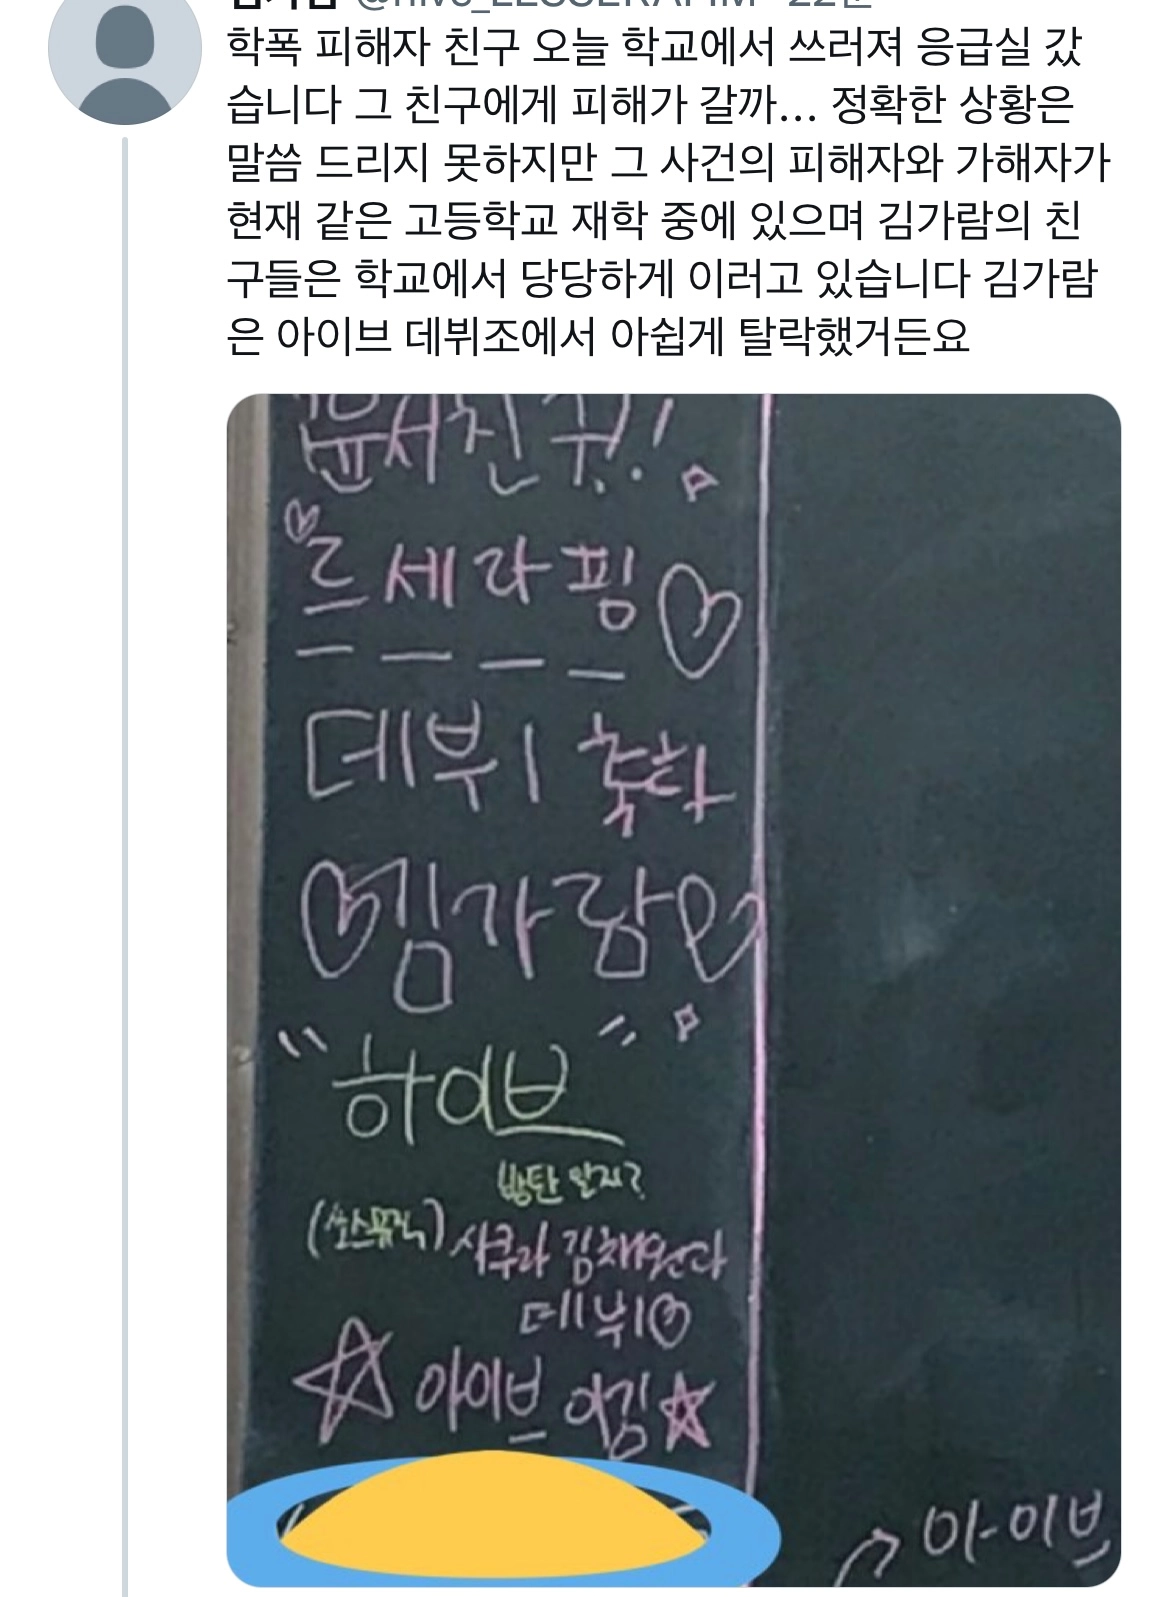 학폭 피해자 친구 오늘 학교에서 쓰러져 응급실 갔
습니다 그 친구에게 피해가 갈까... 정확한 상황은
말씀 드리지 못하지만 그 사건의 피해자와 가해자가
현재 같은 고등학교 재학 중에 있으며 김가람의 친
구들은 학교에서 당당하게 이러고 있습니다 김가람
은 아이브 데뷔조에서 아쉽게 탈락했거든요
윤서친구!!
르세라핌
데뷔 축하
김가람
"하이브"
방탄 알지?
(쏘스뮤직) 사쿠라 김채원이랑
데뷔
아이브 이김
아이브